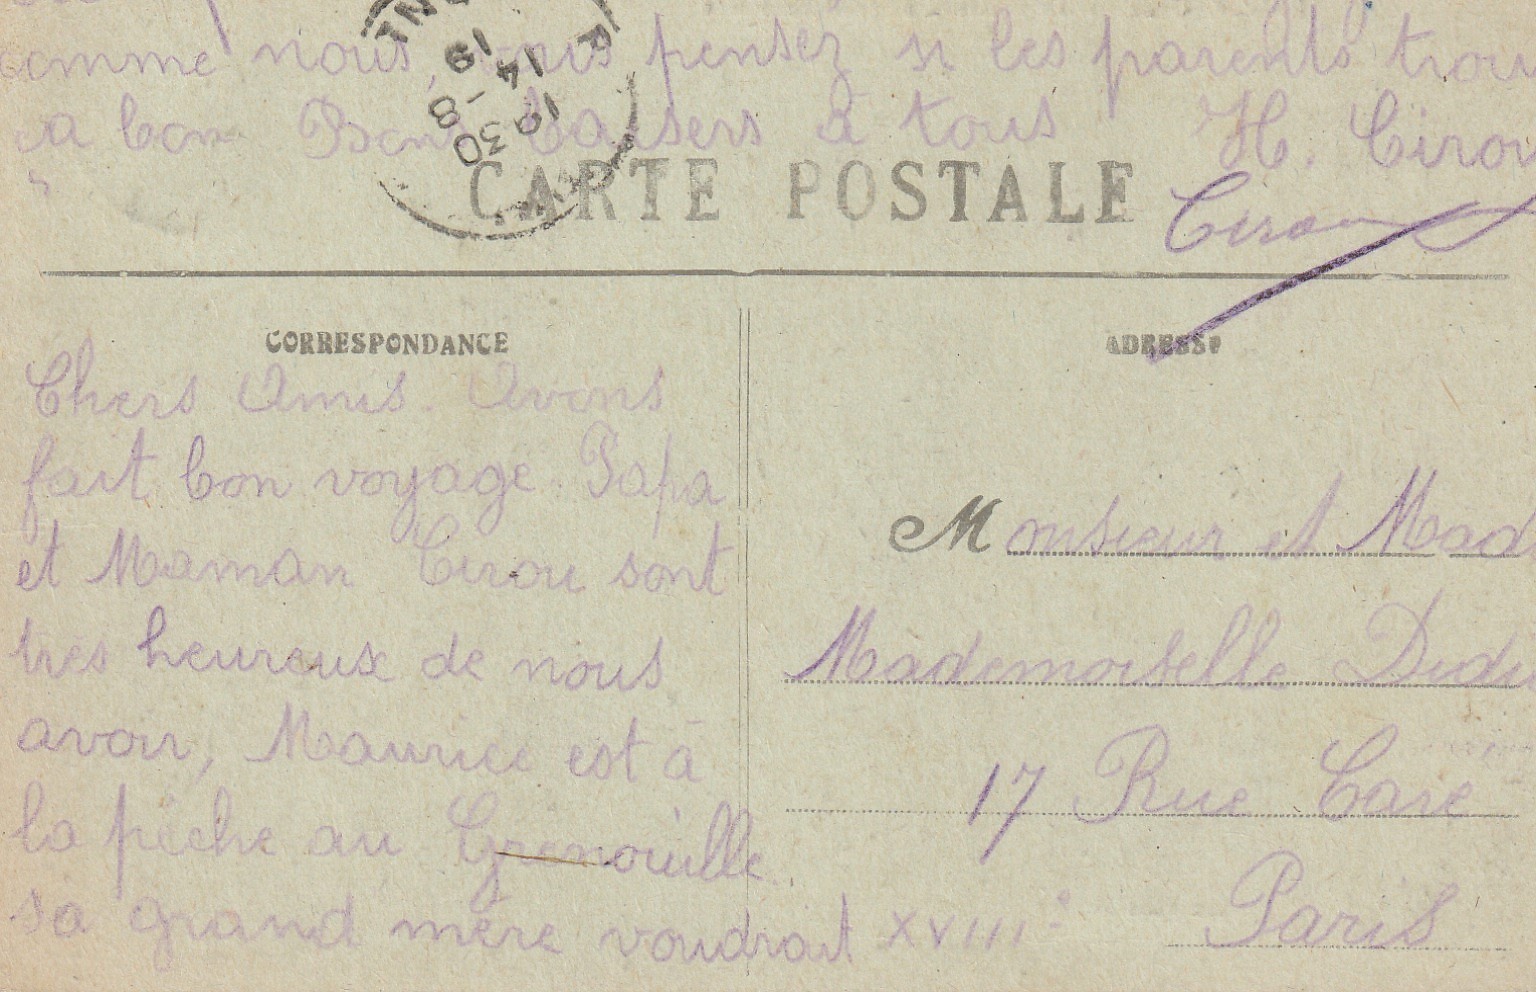 comme nous, vous pensez si les parents trou
ca bon Bons baisers à tous H. Cirou
Cirou
19 14
-8
12 30
CARTE POSTALE
CORRESPONDANCE
ADRESSE
Chers Amis. Avons
fait bon voyage. Papa
et Maman Cirou sont
tres heureux de nous
avoir, Maurice est à
la pèche au Grenouille
sa grand mère voudrait
Monsieur et Mad
Mademoiselle Didi
17 Rue Cavé
Paris
XVIIIe